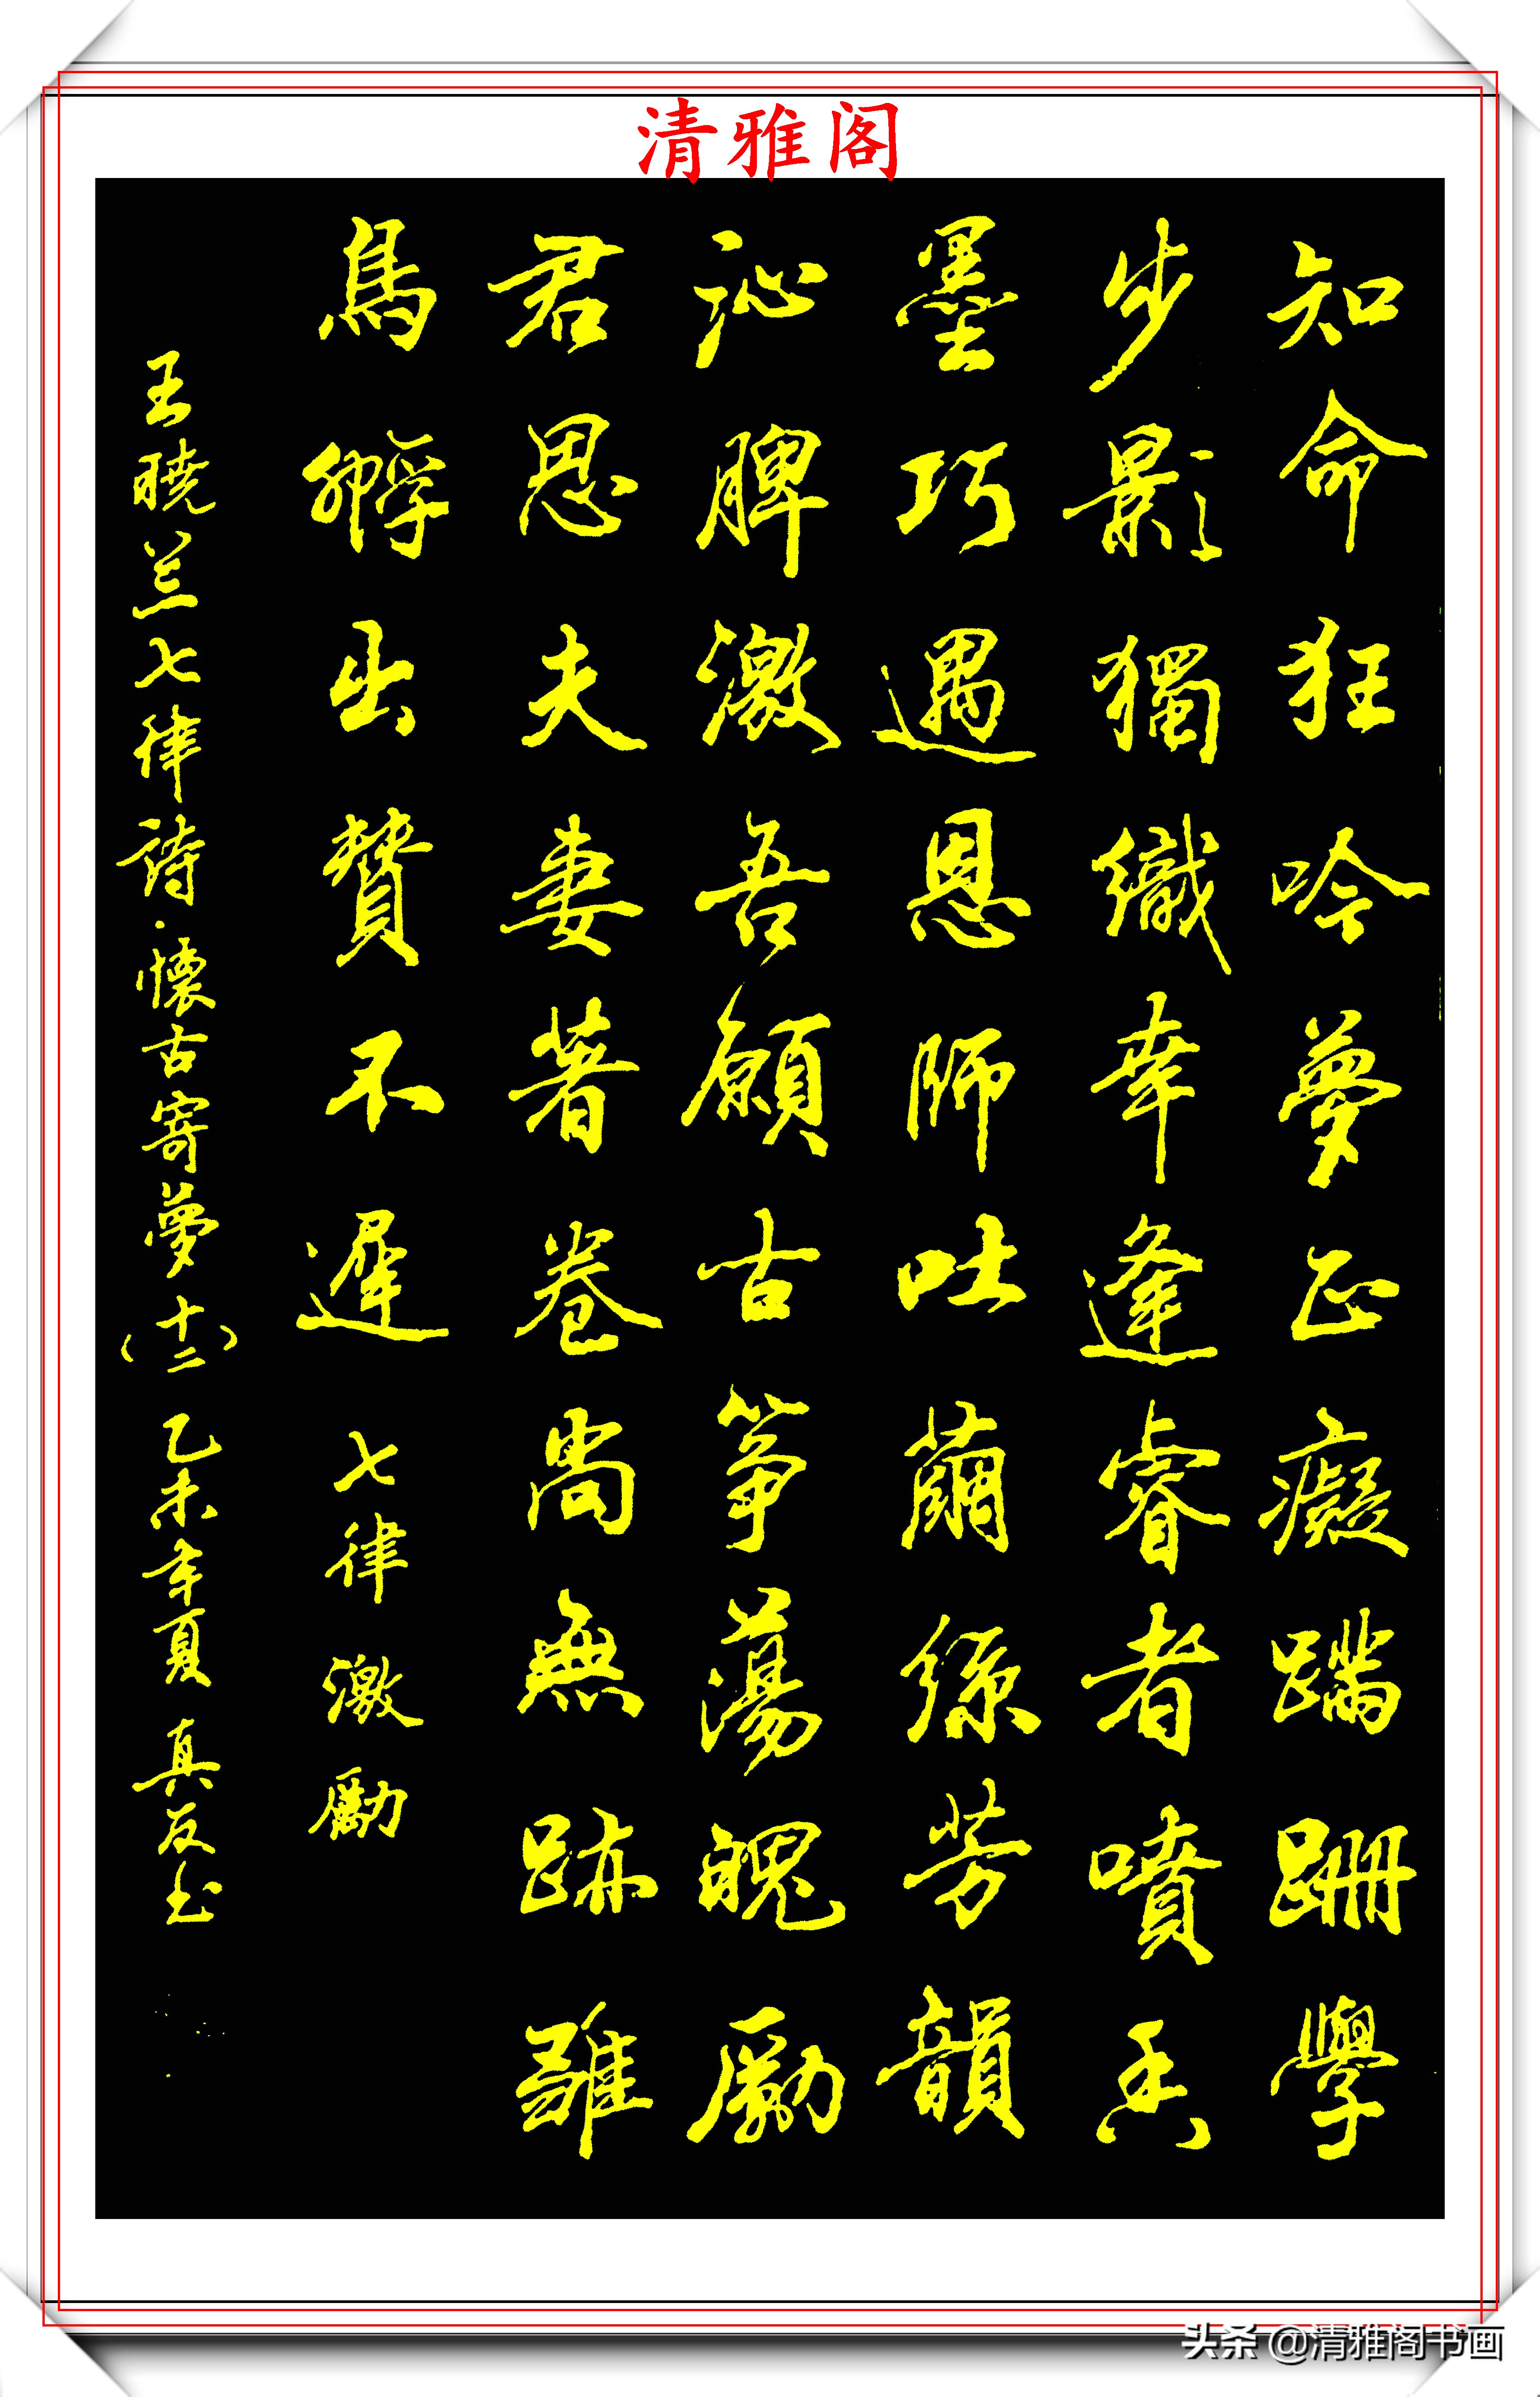 清雅阁
知命狂吟夢正癡蹣跚學
步影獨織幸逢睿者噴香
墨巧遇恩師吐繭絲芳韻
沁脾激吾願古筝蕩魄勵
君思夫妻著卷尚無跡雖
鳥孵出贊不遲 七律激勵
王曉兰七律詩·懷古寄夢(十二) 乙未年夏 真友书
头条 @清雅阁书画